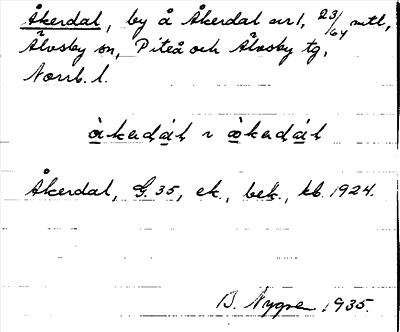 Åkerdal, by å Åkerdal nr 1, 23/64 mtl,
Älvsby sn, Piteå och Älvsby tg,
Norrb. l.
åkɐdɑ́l ~ åkɐdɑ́l
Åkerdal, G 35, ek., bek., kb. 1924.
B. Nygren 1935.